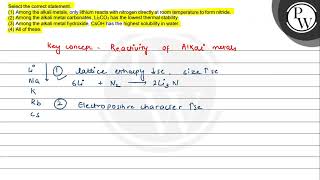 Select the correct statement.
(1) Among the alkali metals, only lithium reacts with nitrogen directly at room temperature to form nitride.
(2) Among the alkali metal carbonates, Li₂CO₃ has the lowest thermal stability.
(3) Among the alkali metal hydroxide, CsOH has the highest solubility in water.
(4) All of these.
PW
Key concept - Reactivity of Alkali metals
Li
Na
K
Rb
Cs
① lattice enthalpy ↓se, size ↑se
6Li + N₂ → 2Li₃N
② Electropositive character ↑se